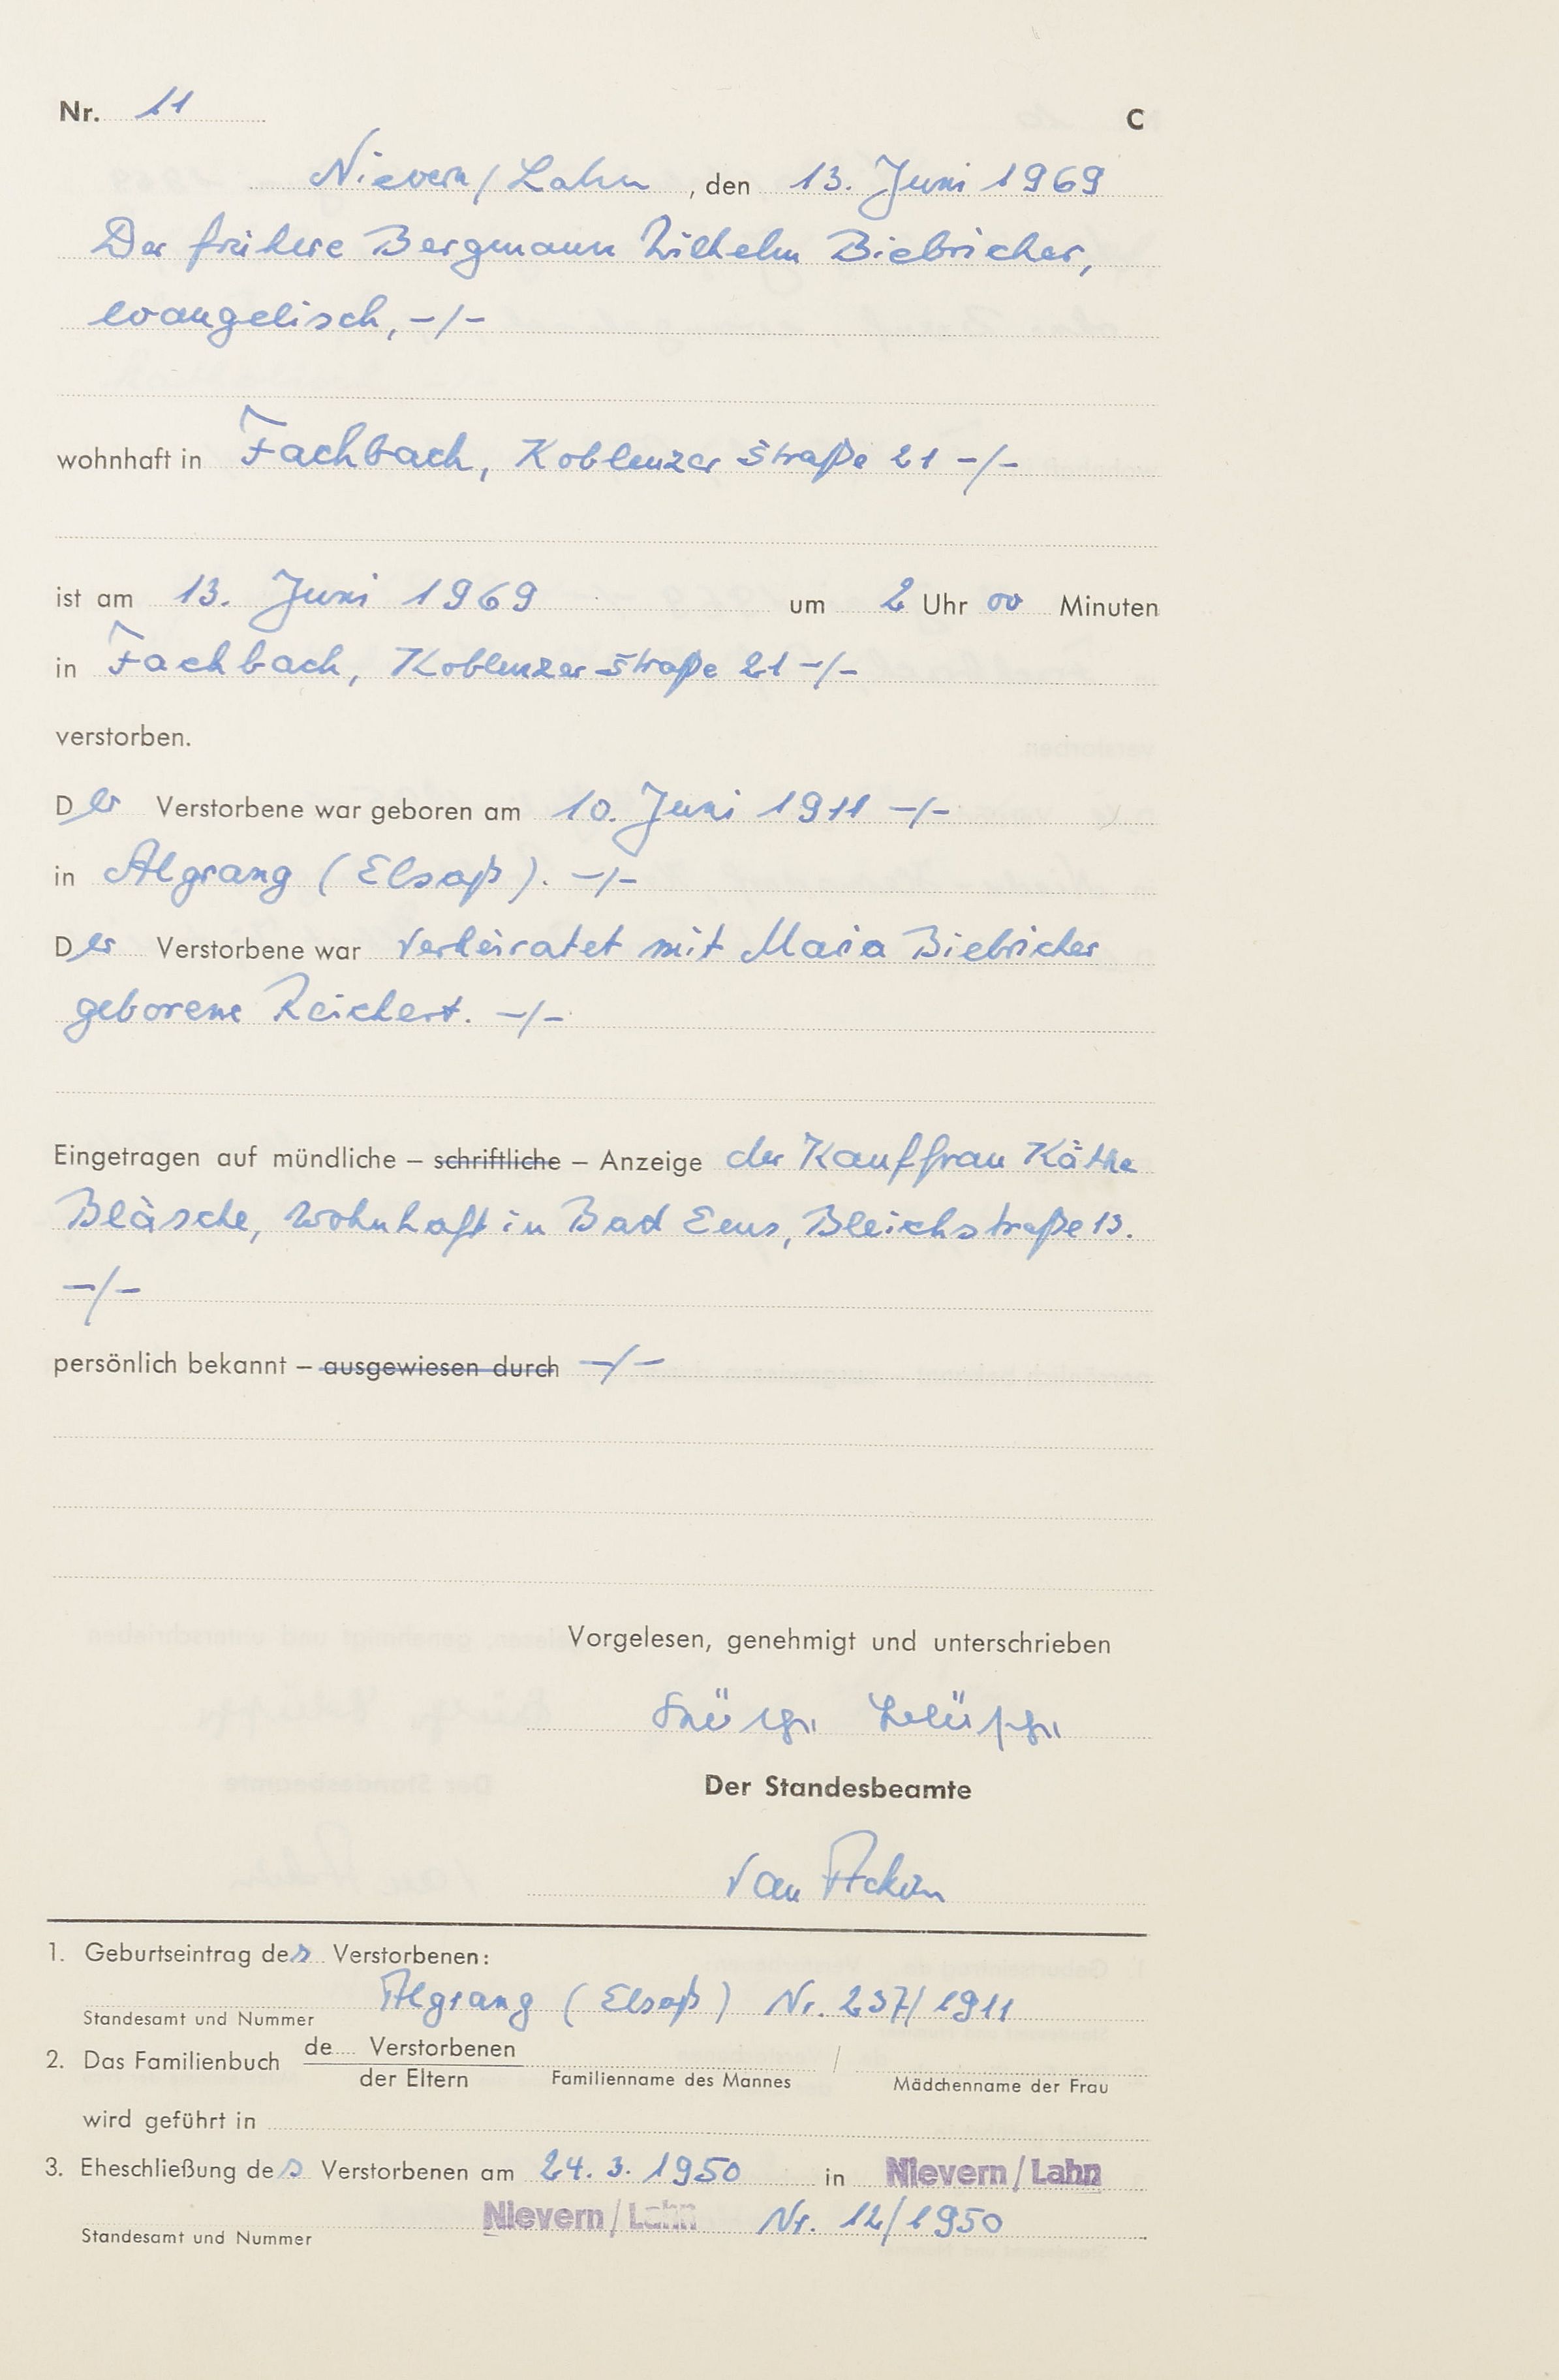 Nr. 11 C
Nievern/Lahn, den 13. Juni 1969
Der frühere Bergmann Wilhelm Biebricher,
evangelisch, -/-
wohnhaft in Fachbach, Koblenzer Straße 21 -/-
ist am 13. Juni 1969 um 2 Uhr 00 Minuten
in Fachbach, Koblenzer Straße 21 -/-
verstorben.
Der Verstorbene war geboren am 10. Juni 1911 -/-
in Algrang (Elsaß). -/-
Der Verstorbene war verheiratet mit Maria Biebricher
geborene Reichert. -/-
Eingetragen auf mündliche – schriftliche – Anzeige der Kauffrau Käthe
Bläsche, wohnhaft in Bad Ems, Bleichstraße 13.
-/-
persönlich bekannt – ausgewiesen durch -/-
Vorgelesen, genehmigt und unterschrieben
Der Standesbeamte
van Acken
1. Geburtseintrag des Verstorbenen:
Standesamt und Nummer Algrang (Elsaß) Nr. 237/1911
2. Das Familienbuch de Verstorbenen /
der Eltern Familienname des Mannes Mädchenname der Frau
wird geführt in
3. Eheschließung des Verstorbenen am 24. 3. 1950 in Nievern/Lahn
Standesamt und Nummer Nievern/Lahn Nr. 12/1950